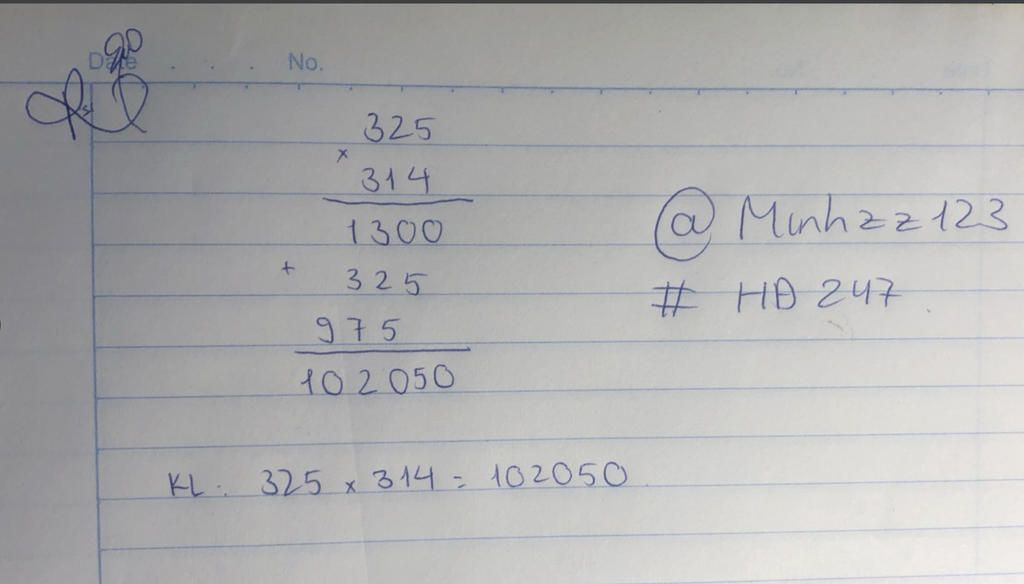 Date No.
325
×
314
1300
+
325
975
102050
@ Minhzz123
# HD 247
KL: 325 × 314 = 102050